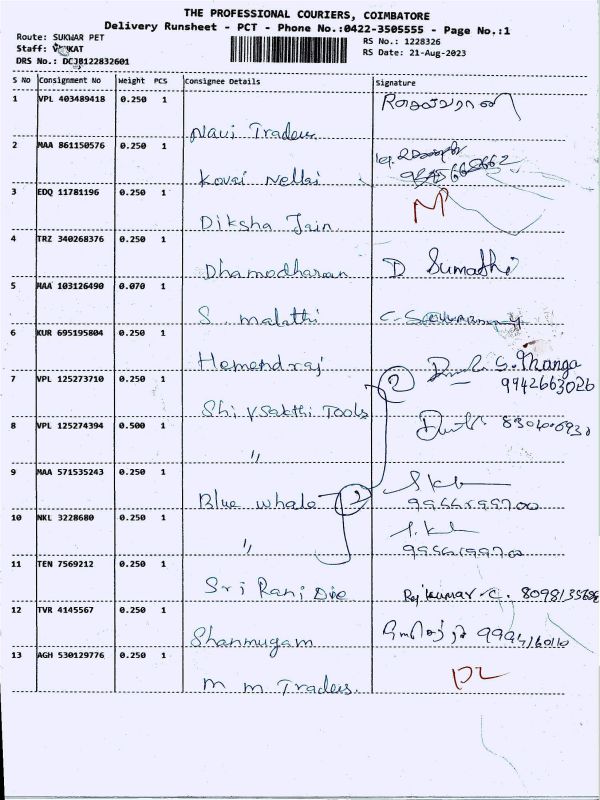 THE PROFESSIONAL COURIERS, COIMBATORE
Delivery Runsheet - PCT - Phone No.:0422-3505555 - Page No.:1
Route: SUKWAR PET
RS No.: 1228326
Staff: VENKAT
RS Date: 21-Aug-2023
DRS No.: DCJB122832601
S No Consignment No Weight PCS Consignee Details Signature
1 VPL 403489418 0.250 1
Navi Traders
2 MAA 861150576 0.250 1
Kovai Nellai
3 EDQ 11781196 0.250 1
Diksha Jain
4 TRZ 340268376 0.250 1
Dhamodharan D Sumathi
5 MAA 103126490 0.070 1
S. malathi
6 KUR 695195804 0.250 1
Hemendraj S. Thanga
7 VPL 125273710 0.250 1 2 9942663026
Shiv Sakthi Tools
8 VPL 125274394 0.500 1
"
9 MAA 571535243 0.250 1
Blue whale 2
10 NKL 3228680 0.250 1
"
11 TEN 7569212 0.250 1
Sri Rani Die Rajkumar.C.
12 TVR 4145567 0.250 1
Shanmugam
13 AGH 530129776 0.250 1
M M Traders. DL